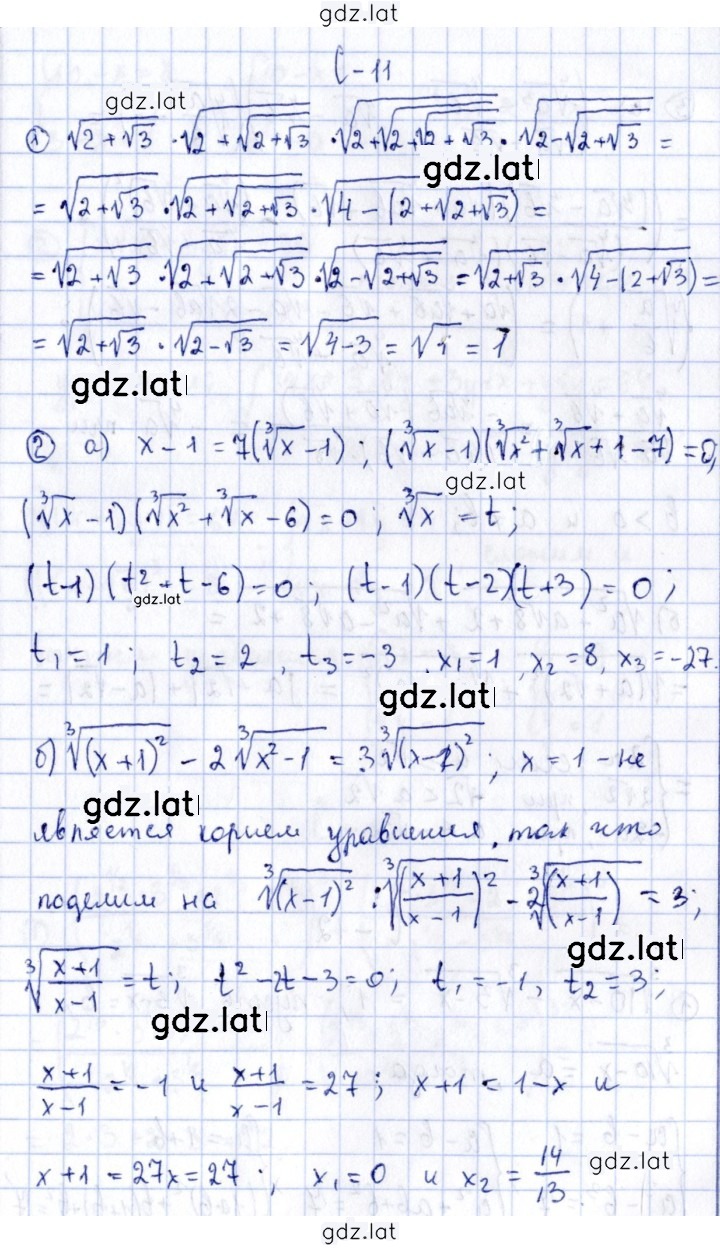 gdz.lat
С-11
gdz.lat
① √(2+√3) · √(2+√(2+√3)) · √(2+√(2+√(2+√3))) · √(2-√(2+√3)) =
gdz.lat
= √(2+√3) · √(2+√(2+√3)) · √(4-(2+√(2+√3))) =
= √(2+√3) · √(2+√(2+√3)) · √(2-√(2+√3)) = √(2+√3) · √(4-(2+√3)) =
= √(2+√3) · √(2-√3) = √(4-3) = √1 = 1
gdz.lat
② а) x-1 = 7(∛x-1); (∛x-1)(∛x²+∛x+1-7)=0,
gdz.lat
(∛x-1)(∛x²+∛x-6)=0; ∛x = t;
(t-1)(t²+t-6)=0; (t-1)(t-2)(t+3)=0;
gdz.lat
t₁=1; t₂=2, t₃=-3. x₁=1, x₂=8, x₃=-27.
gdz.lat
б) ∛(x+1)² - 2∛(x²-1) = 3∛(x-1)²; x=1 - не
gdz.lat
является корнем уравнения, так что
поделим на ∛(x-1)² : ∛((x+1)/(x-1))² - 2∛((x+1)/(x-1)) = 3;
gdz.lat
∛((x+1)/(x-1)) = t; t²-2t-3=0; t₁=-1, t₂=3;
gdz.lat
(x+1)/(x-1) = -1 и (x+1)/(x-1) = 27; x+1 = 1-x и
x+1 = 27x=27; x₁=0 и x₂ = 14/13
gdz.lat
gdz.lat